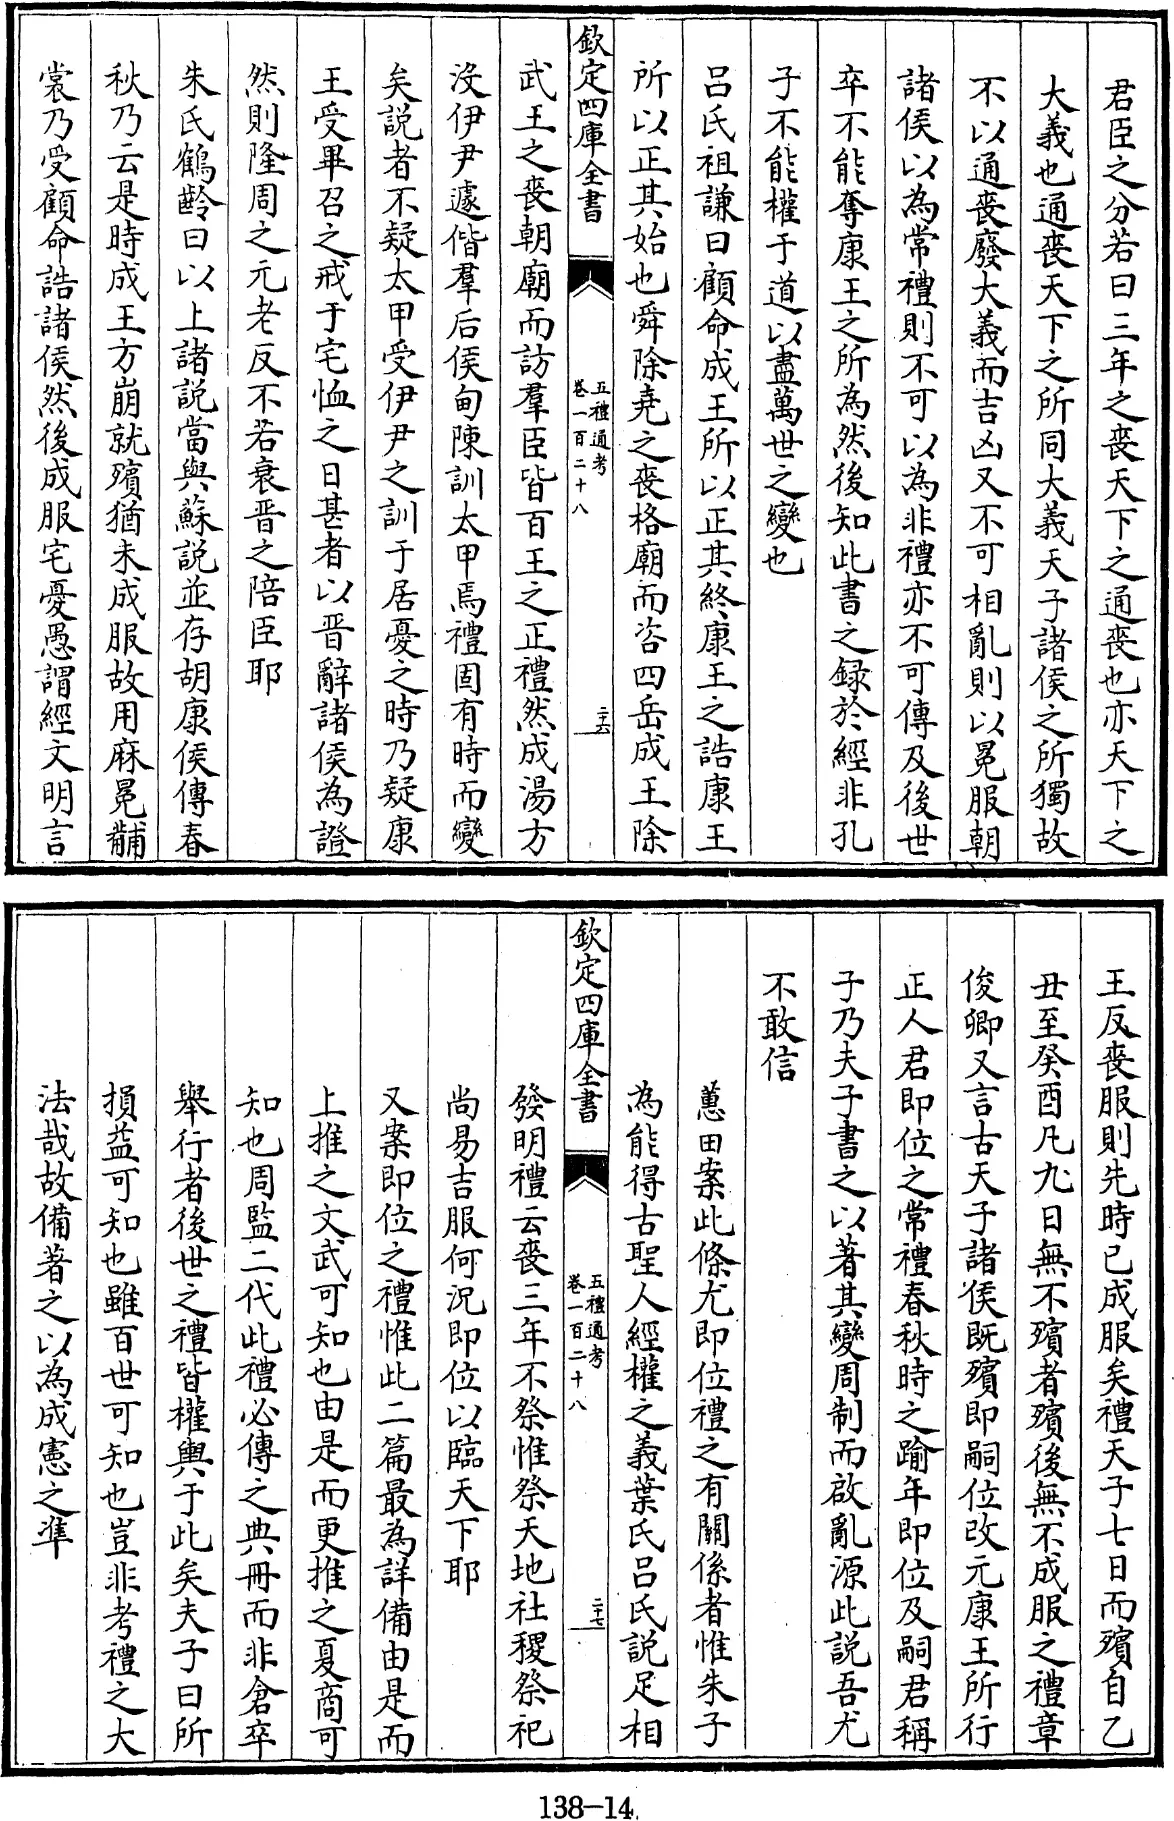 君臣之分若曰三年之喪天下之通喪也亦天下之
大義也通喪天下之所同大義天子諸侯之所獨故
不以通喪廢大義而吉凶又不可相亂則以冕服朝
諸侯以為常禮則不可以為非禮亦不可傳及後世
卒不能奪康王之所為然後知此書之録於經非孔
子不能權于道以盡萬世之變也
呂氏祖謙曰顧命成王所以正其終康王之誥康王
所以正其始也舜除堯之喪格廟而咨四岳成王除
欽定四庫全書
五禮通考
卷一百二十八
二十六
武王之喪朝廟而訪羣臣皆百王之正禮然成湯方
没伊尹遽偕羣后侯甸陳訓太甲焉禮固有時而變
矣説者不疑太甲受伊尹之訓于居憂之時乃疑康
王受畢召之戒于宅恤之日甚者以晋辭諸侯為證
然則隆周之元老反不若衰晋之陪臣耶
朱氏鶴齡曰以上諸説當與蘇説並存胡康侯傳春
秋乃云是時成王方崩就殯猶未成服故用麻冕黼
裳乃受顧命誥諸侯然後成服宅憂愚謂經文明言
王反喪服則先時已成服矣禮天子七日而殯自乙
丑至癸酉凡九日無不殯者殯後無不成服之禮章
俊卿又言古天子諸侯既殯即嗣位改元康王所行
正人君即位之常禮春秋時之踰年即位及嗣君稱
子乃夫子書之以著其變周制而啟亂源此説吾尤
不敢信
蕙田案此條尤即位禮之有關係者惟朱子
為能得古聖人經權之義葉氏呂氏説足相
欽定四庫全書
五禮通考
卷一百二十八
二十七
發明禮云喪三年不祭惟祭天地社稷祭祀
尚易吉服何況即位以臨天下耶
又案即位之禮惟此二篇最為詳備由是而
上推之文武可知也由是而更推之夏商可
知也周監二代此禮必傳之典冊而非倉卒
舉行者後世之禮皆權輿于此矣夫子曰所
損益可知也雖百世可知也豈非考禮之大
法哉故備著之以為成憲之準
138-14